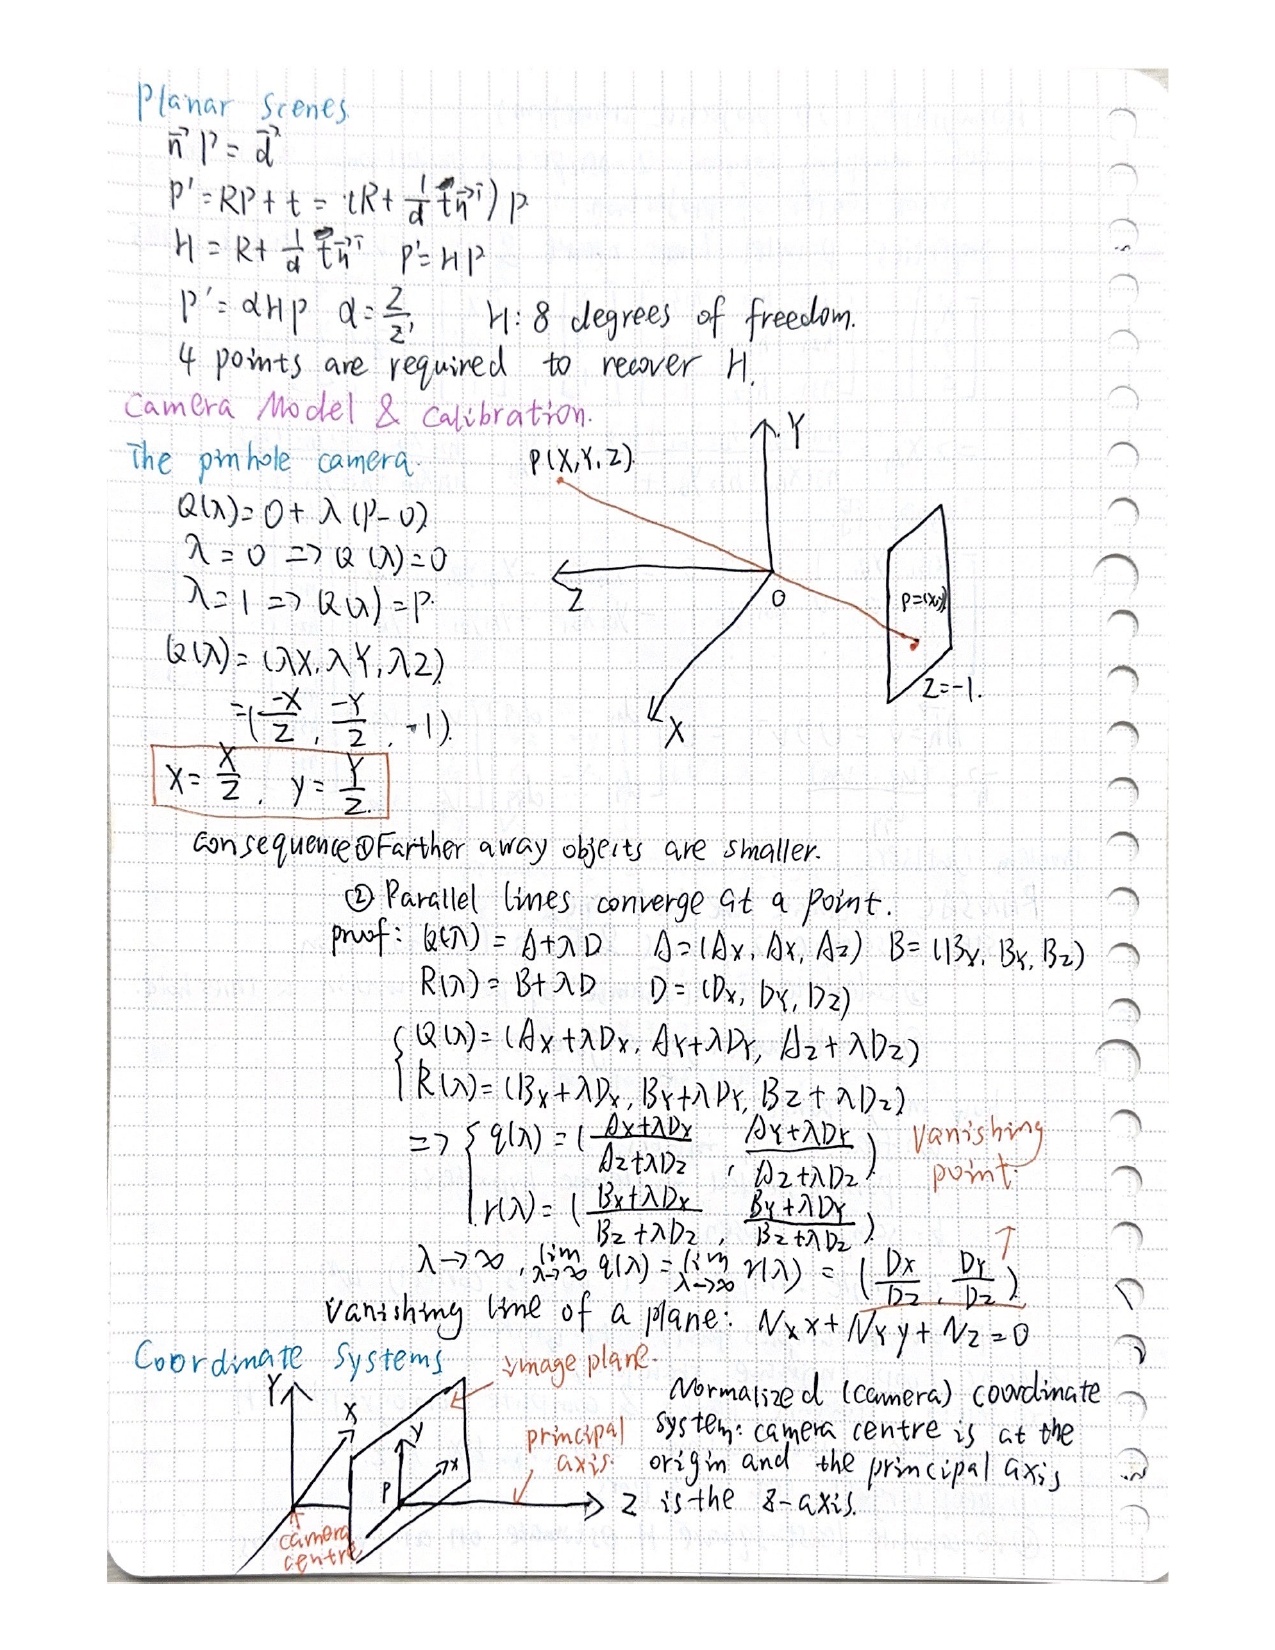 Planar Scenes
n⃗ P = d⃗
P' = RP + t = (R + 1/d t⃗ n⃗ᵀ) P
H = R + 1/d t⃗ n⃗ᵀ P' = HP
P' = αHP α = Z/Z' H: 8 degrees of freedom.
4 points are required to recover H.
Camera Model & Calibration.
The pinhole camera.
P(X, Y, Z)
Y
Q(λ) = O + λ(P - O)
λ = 0 => Q(λ) = O
λ = 1 => Q(λ) = P.
Z
O
P=(x,y)
Q(λ) = (λX, λY, λZ)
Z=-1.
= (-X/Z, -Y/Z, -1).
X
x = X/Z, y = Y/Z.
Consequence ① Farther away objects are smaller.
② Parallel lines converge at a point.
proof: Q(λ) = A + λD A = (Ax, Ax, Az) B = (Bx, By, Bz)
R(λ) = B + λD D = (Dx, Dy, Dz)
{ Q(λ) = (Ax + λDx, Ay + λDy, Az + λDz)
R(λ) = (Bx + λDx, By + λDy, Bz + λDz)
=> { q(λ) = (Ax+λDx / Az+λDz, Ay+λDy / Az+λDz)
vanishing
point.
r(λ) = (Bx+λDx / Bz+λDz, By+λDy / Bz+λDz)
λ→∞, lim λ→∞ q(λ) = lim λ→∞ r(λ) = (Dx/Dz, Dy/Dz)
Vanishing line of a plane: Nx x + Ny y + Nz = 0
Coordinate Systems
image plane.
Y
X
y
x
P
principal
axis
Z
camera
centre
Normalized (camera) coordinate
system: camera centre is at the
origin and the principal axis
is the z-axis.